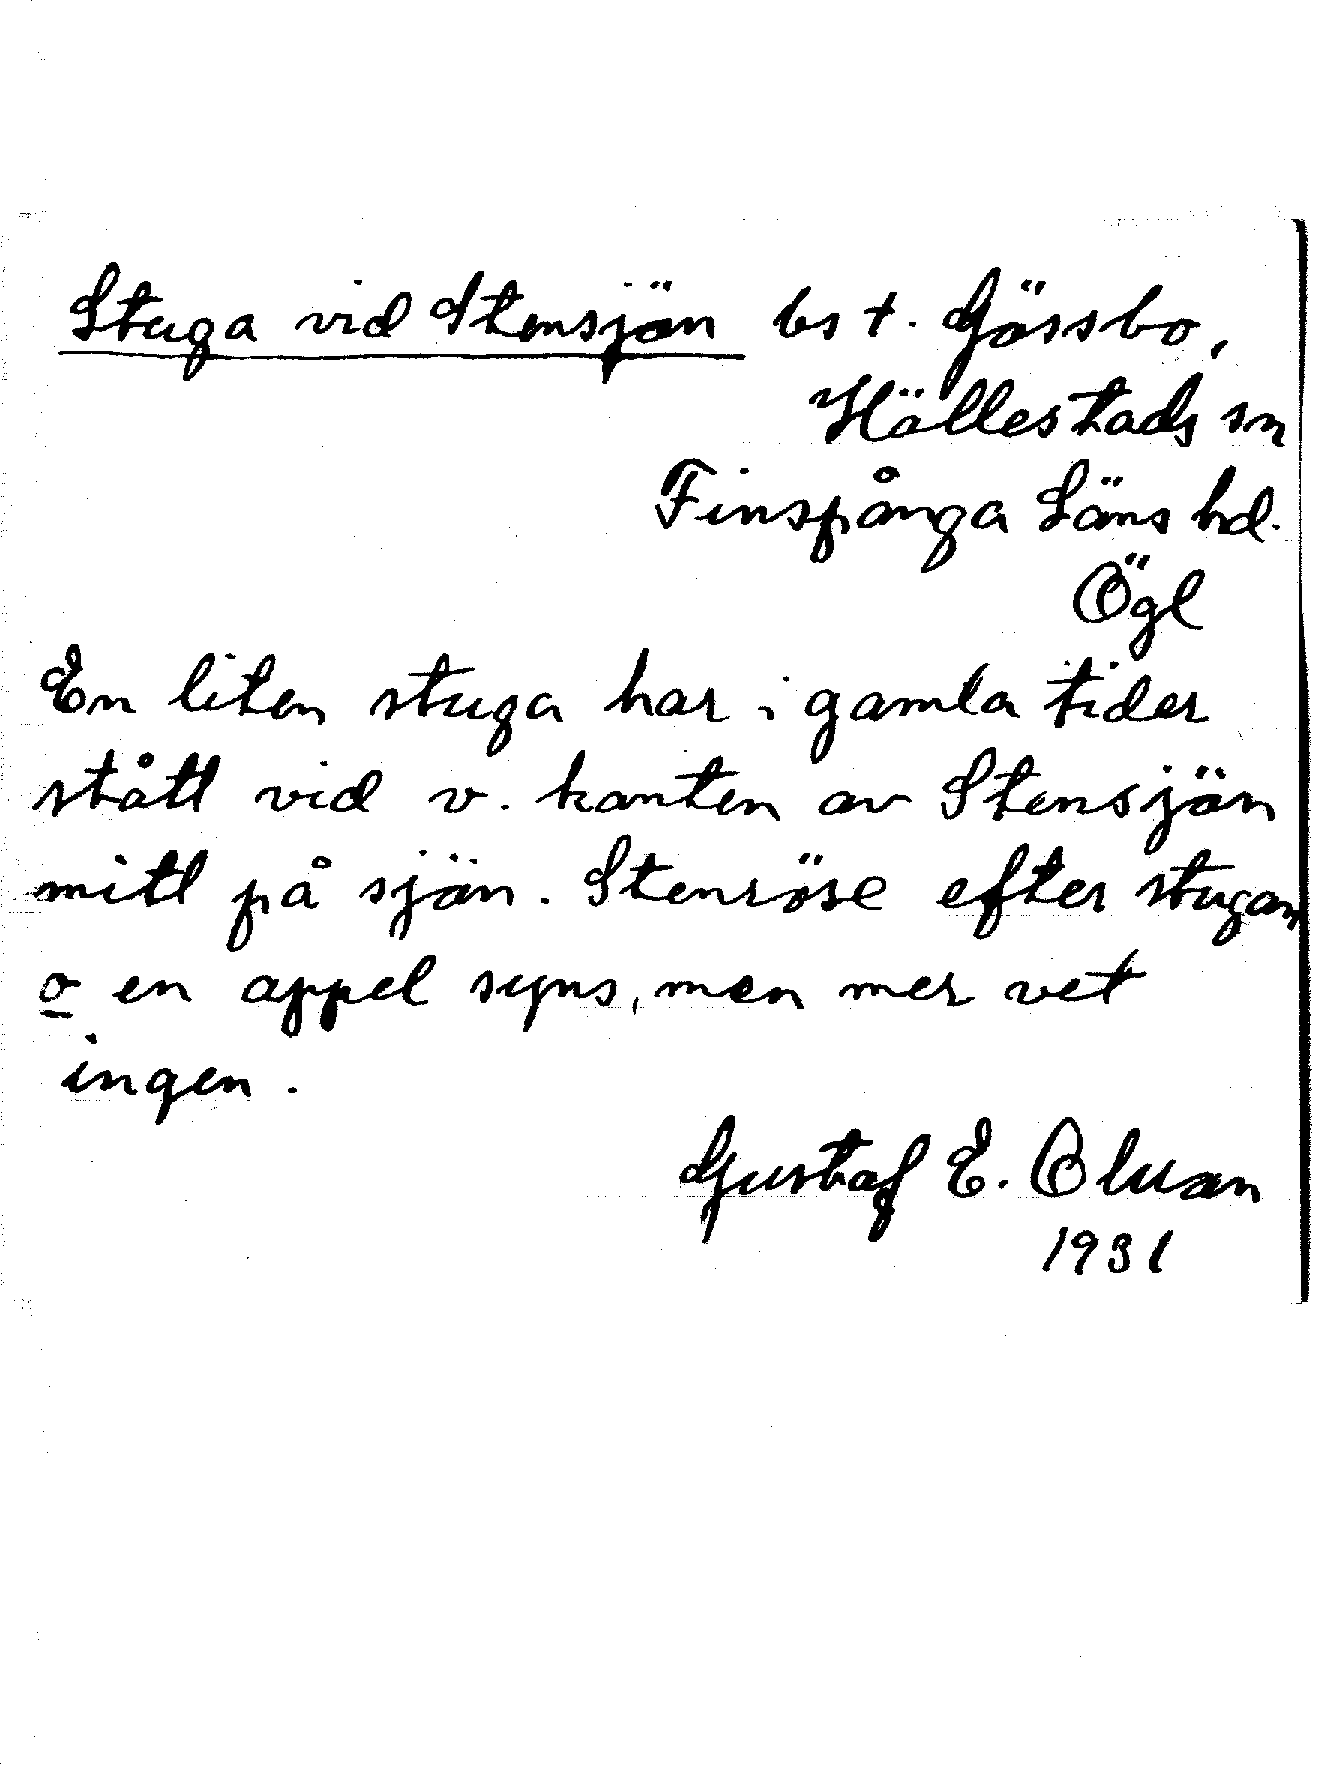 Stuga vid Stensjön bs t. Gössbo,
Hällestads sn
Finspånga Läns hd.
Ögl
En liten stuga har i gamla tider
stått vid v. kanten av Stensjön
mitt på sjön. Stenröse efter stugan
o en appel syns, men mer vet
ingen.
Gustaf E.
1931